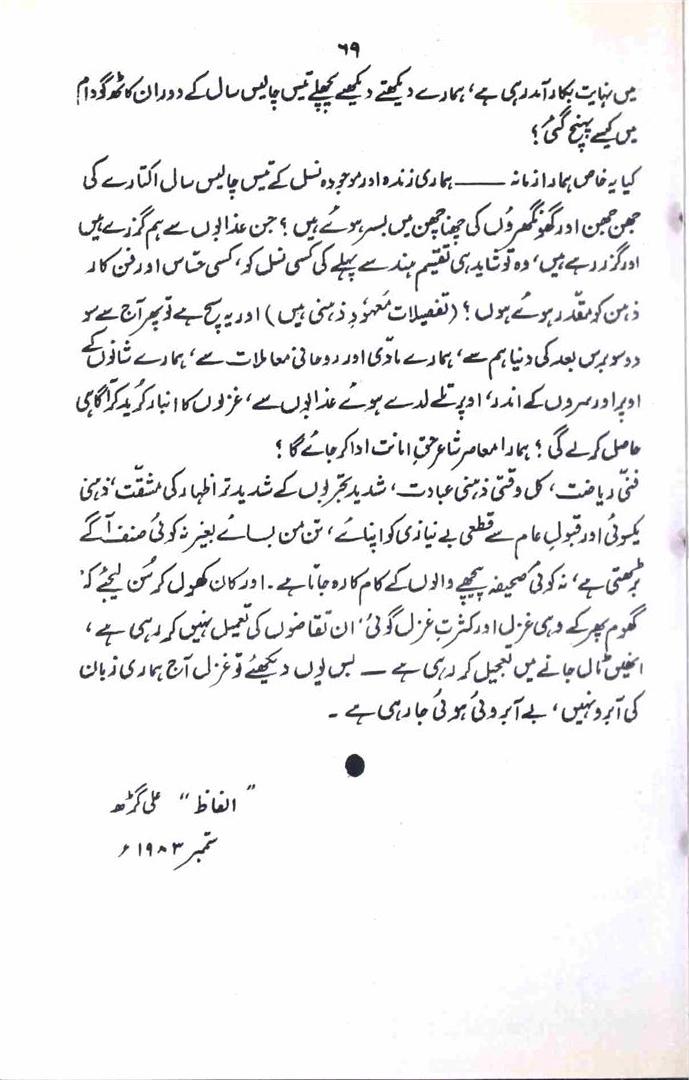 ۶۹
میں نہایت بکار آمد رہی ہے، ہمارے دیکھتے دیکھتے پچھلے تیس چالیس سال کے دوران کاٹھ گودام
میں کیسے پہنچ گئی؟
کیا یہ خاص ہمارا زمانہ —— ہماری زندہ اور موجودہ نسل کے تیس چالیس سال اکتارے کی
جھن جھن اور گھونگھروں کی چھنا چھن میں بسر ہوئے ہیں؟ جن عذابوں سے ہم گزرے ہیں
اور گزر رہے ہیں، وہ تو شاید ہی تقسیم ہند سے پہلے کی کسی نسل کو، کسی حسّاس اور فن کار
ذہن کو مقدّر ہوئے ہوں؟ (تفصیلات معہودِ ذہنی ہیں) اور یہ سچ ہے تو پھر آج سے سو
دو سو برس بعد کی دنیا ہم سے، ہمارے مادّی اور روحانی معاملات سے، ہمارے شانوں کے
اوپر اور سروں کے اندر، اوپر تلے لدے ہوئے عذابوں سے، غزلوں کا انبار کرید کر آگاہی
حاصل کرلے گی؟ ہمارا معاصر شاعر حقِ امانت ادا کر جائے گا؟
فنّی ریاضت، کل وقتی ذہنی عبادت، شدید تجربوں کے شدید تر اظہار کی مشقّت، ذہنی
یکسوئی اور قبولِ عام سے قطعی بے نیازی کو اپنائے، تن من بسائے بغیر نہ کوئی صنف آگے
بڑھتی ہے، نہ کوئی صحیفہ پیچھے والوں کے کام کا رہ جاتا ہے۔ اور کان کھول کر سُن لیجئے کہ
گھوم پھر کے وہی غزل اور کثرتِ غزل گوئی، ان تقاضوں کی تعمیل نہیں کر رہی ہے،
انھیں ٹال جانے میں تعجیل کر رہی ہے — بس یوں دیکھئے تو غزل آج ہماری زبان
کی آبرو نہیں، بے آبروئی ہوئی جا رہی ہے۔
"الفاظ" علی گڑھ
ستمبر ۱۹۸۳ء